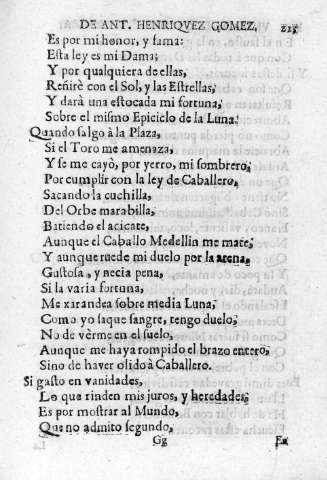 DE ANT. HENRIQVEZ GOMEZ. 225
Es por mi honor, y fama:
Esta ley es mi Dama;
Y por qualquiera de ellas,
Reñirè con el Sol, y las Estrellas,
Y darà una estocada mi fortuna,
Sobre el mismo Epiciclo de la Luna.
Quando salgo à la Plaza,
Si el Toro me amenaza,
Y se me cayò, por yerro, mi sombrero,
Por cumplir con la ley de Caballero,
Sacando la cuchilla,
Del Orbe marabilla,
Batiendo el acicate,
Aunque el Caballo Medellin me mate,
Y aunque ruede mi duelo por la arena,
Gustosa, y necia pena,
Si la varia fortuna,
Me xarandea sobre media Luna,
Como yo saque sangre, tengo duelo,
No de vèrme en el suelo,
Aunque me haya rompido el brazo entero,
Sino de haver olido à Caballero.
Si gasto en vanidades,
Lo que rinden mis juros, y heredades,
Es por mostrar al Mundo,
Que no admito segundo,
Gg En